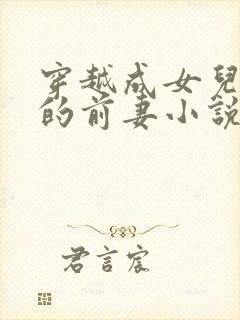 穿越成女兒
的前妻小説
君言宸